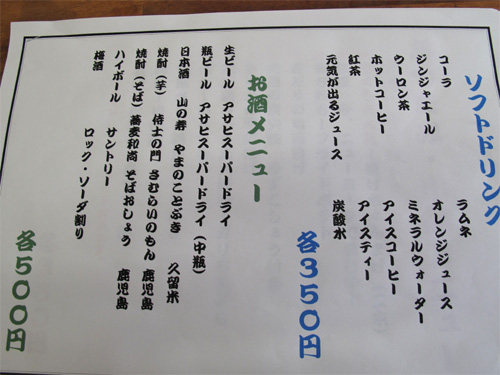 ソフトドリンク
コーラ　ラムネ
ジンジャエール　オレンジジュース
ウーロン茶　ミネラルウォーター
ホットコーヒー　アイスコーヒー
紅茶　アイスティー
元気が出るジュース　炭酸水
各350円
お酒メニュー
生ビール　アサヒスーパードライ
瓶ビール　アサヒスーパードライ（中瓶）
日本酒　山の寿　やまのことぶき　久留米
焼酎（芋）　侍士の門　さむらいのもん　鹿児島
焼酎（そば）　蕎麦和尚　そばおしょう　鹿児島
ハイボール　サントリー
梅酒　ロック・ソーダ割り
各500円